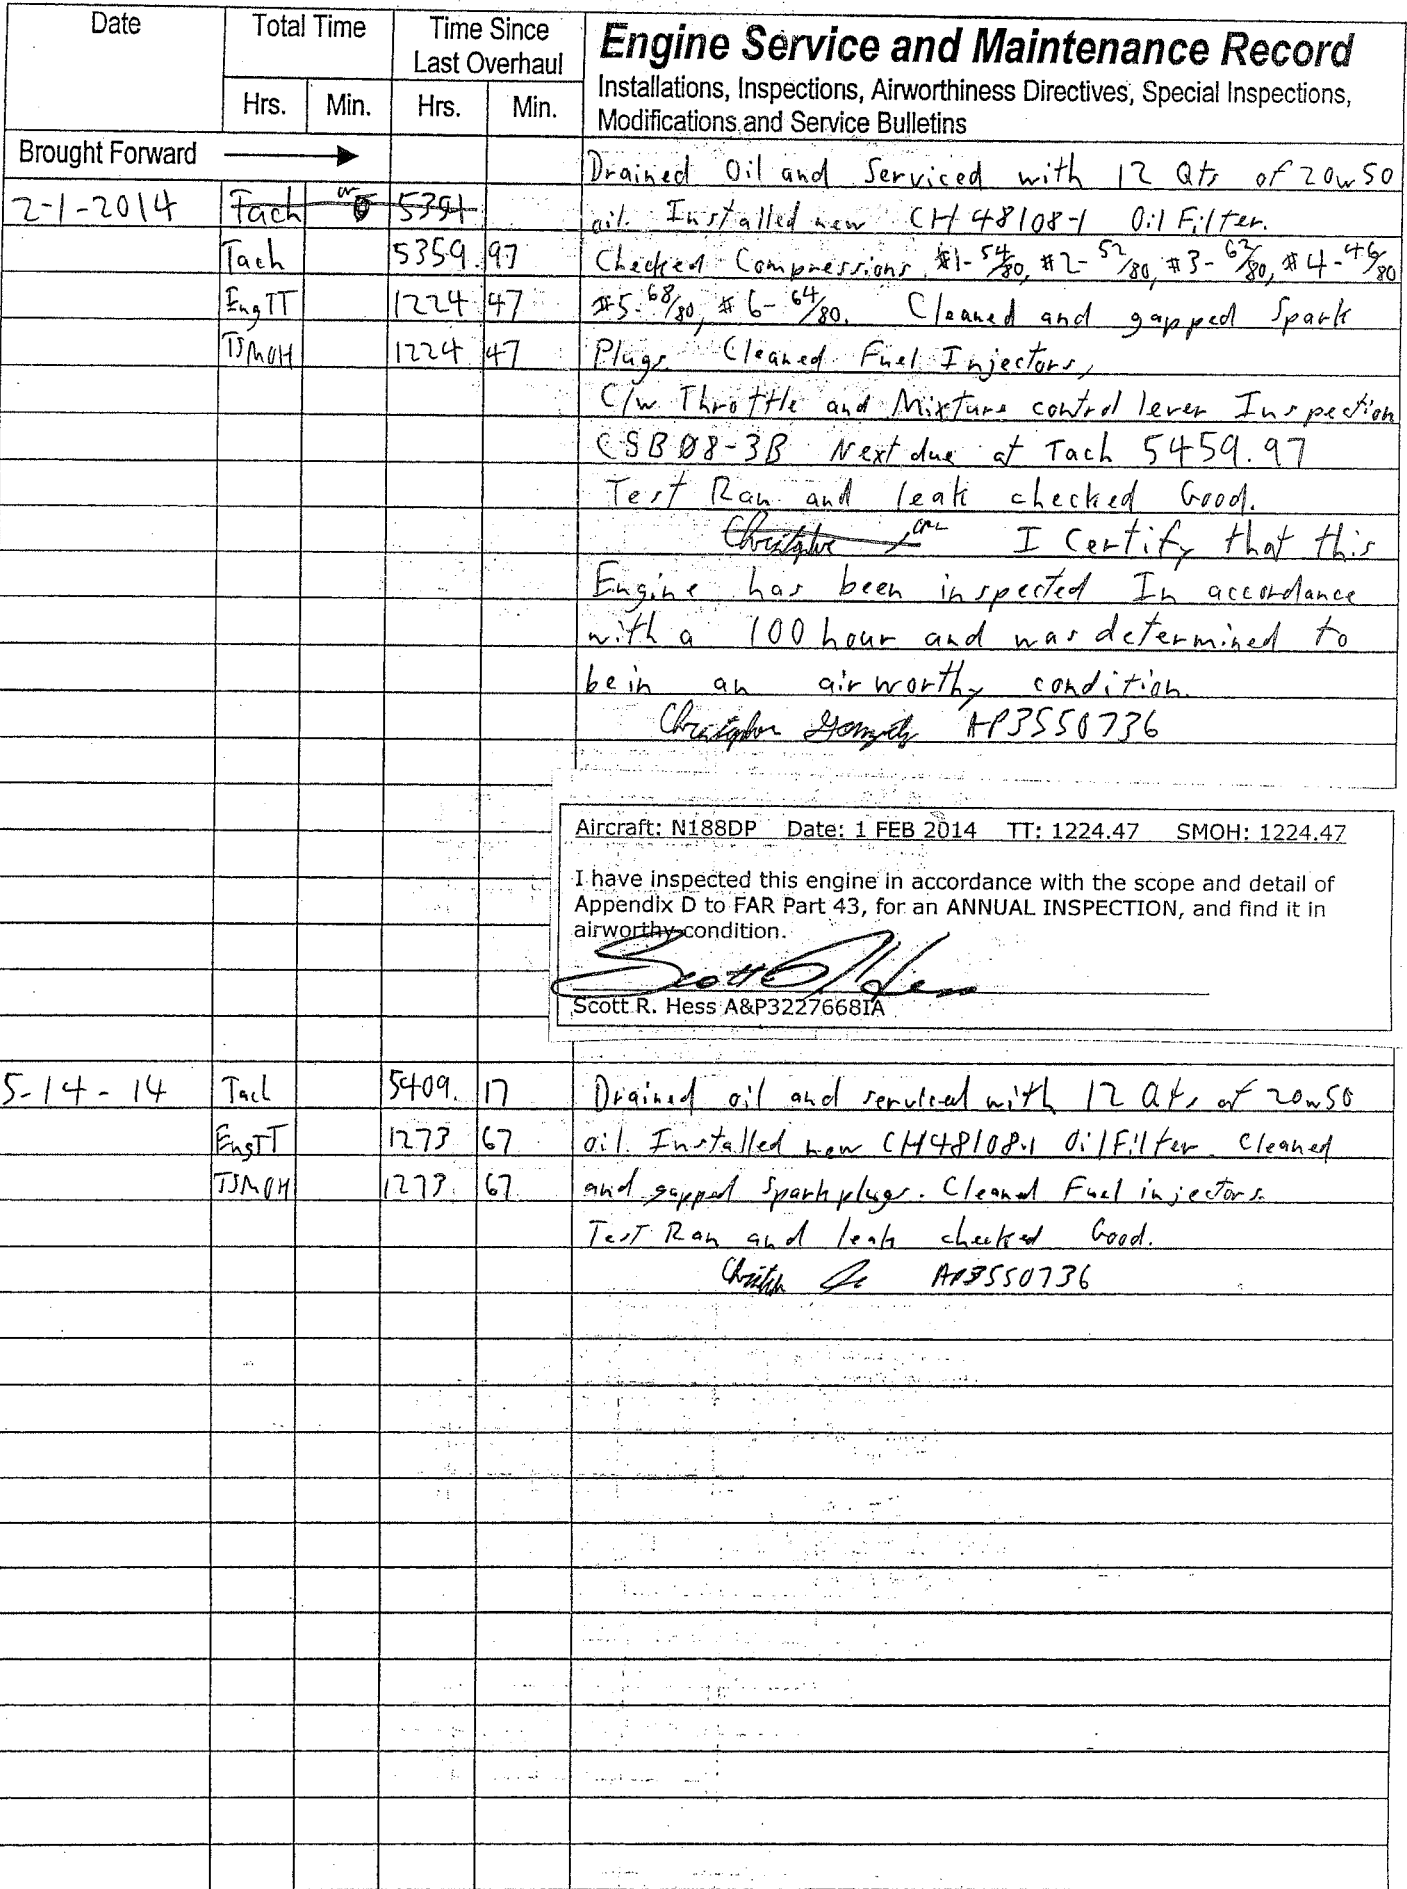 Date Total Time Time Since Last Overhaul Engine Service and Maintenance Record
Hrs. Min. Hrs. Min. Installations, Inspections, Airworthiness Directives, Special Inspections,
Modifications and Service Bulletins
Brought Forward Drained Oil and Serviced with 12 Qts of 20w50
2-1-2014 Tach 5391 oil. Installed new CH48108-1 Oil Filter.
Tach 5359.97 Checked Compressions #1-54/80, #2-52/80, #3-62/80, #4-46/80
Eng TT 1224 47 #5-68/80, #6-64/80. Cleaned and gapped Spark
TSMOH 1224 47 Plugs. Cleaned Fuel Injectors,
C/w Throttle and Mixture control lever Inspection
CSB08-3B Next due at Tach 5459.97
Test Ran and leak checked Good.
I Certify that this
Engine has been inspected In accordance
with a 100 hour and was determined to
be in an airworthy condition.
Christopher AP3550736
Aircraft: N188DP Date: 1 FEB 2014 TT: 1224.47 SMOH: 1224.47
I have inspected this engine in accordance with the scope and detail of
Appendix D to FAR Part 43, for an ANNUAL INSPECTION, and find it in
airworthy condition.
Scott R Hess
Scott R. Hess A&P3227668IA
5-14-14 Tach 5409. 17 Drained oil and serviced with 12 Qts of 20w50
EngTT 1273 67 oil. Installed new CH48108-1 Oil Filter. Cleaned
TSMOH 1273. 67 and gapped Spark plugs. Cleaned Fuel injectors.
Test Ran and leak checked Good.
AP3550736